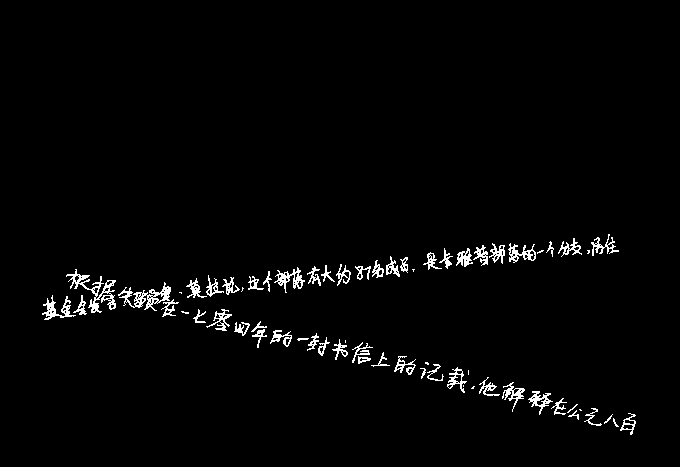 基金会发言人 莫拉说,这个部落有大约87名成员,是卡雅普部落的一个分支,居住
根据 在一七零四年的一封书信上的记载,他解释在公元八百